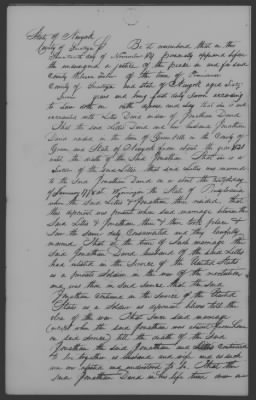 State of New York
County of } Be it remembered that on this
day of November 1844 personally appeared before
the undersigned a justice of the peace in and for said
County of the town of
County of and State of New York aged Sixty
years and being first duly sworn according
to law doth on oath depose and say that she is well
acquainted with Lettis Davis widow of Jonathan Davis
That the said Lettis Davis and her husband Jonathan
Davis resided in the town of in the County of
Green and State of New York from about the year 1821
until the death of the said Jonathan That she is a
Sister of the said Lettis that said Lettis was married
to the said Jonathan Davis on or about the
of January 1778 at Wyoming in the State of Pensylvania
where the said Lettis & Jonathan then resided that
this deponent was present when said marriage between the
said Lettis & Jonathan then & there took place &
saw the same duly consummated and they lawfully
married That at the time of such marriage the
said Jonathan Davis husband of the said Lettis
had enlisted in the Service of the United States
as a private soldier in the war of the revolution
and was then in said service that the said
Jonathan continued in the service of the United
States as a soldier as deponent believes till the
close of the war That from said marriage
(except when the said Jonathan was absent from home
in said service) till the death of the said
Jonathan the said Jonathan and Lettis continued
to live together as husband and wife and as such
were reputed and understood to be That the
said Jonathan Davis in his life time